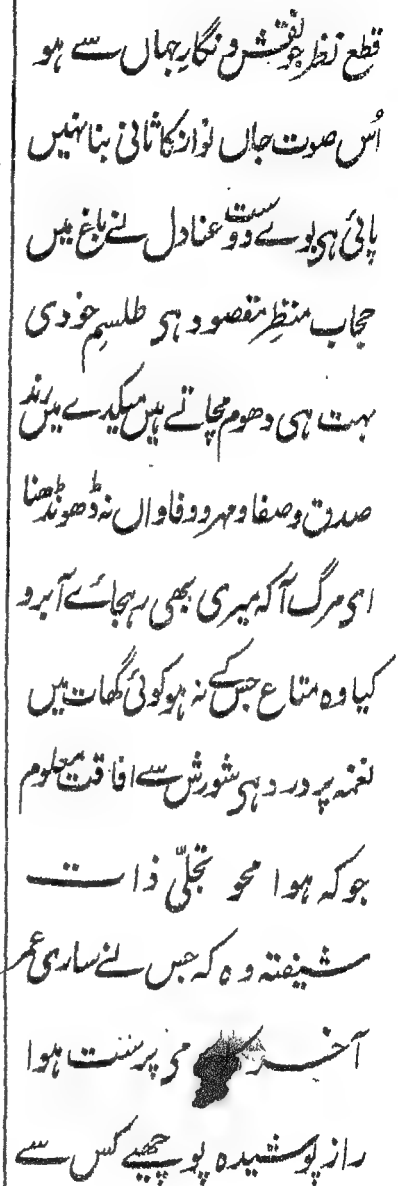 قطع نظر جو نقش و نگار جہاں سے ہو
اُس صوت جاں نواز کا ثانی بنا نہیں
پائی ہی بوے دوست عنادل نے باغ میں
حجاب منظرِ مقصود ہی طلسمِ خودی
بہت ہی دھوم مچاتے ہیں میکدے میں رند
صدق و صفا و مہر و وفا واں نہ ڈھونڈھنا
ای مرگ آ کہ میری بھی رہجائے آبرو
کیا وہ متاع جس کے نہ ہو کوئی گھات میں
نغمہ پر درد ہی شورش سے افاقت معلوم
جو کہ ہوا محو تجلّی ذات
شیفتہ وہ کہ جس نے ساری عمر
آخر می پرست ہوا
راز پوشیدہ پوچھیے کس سے